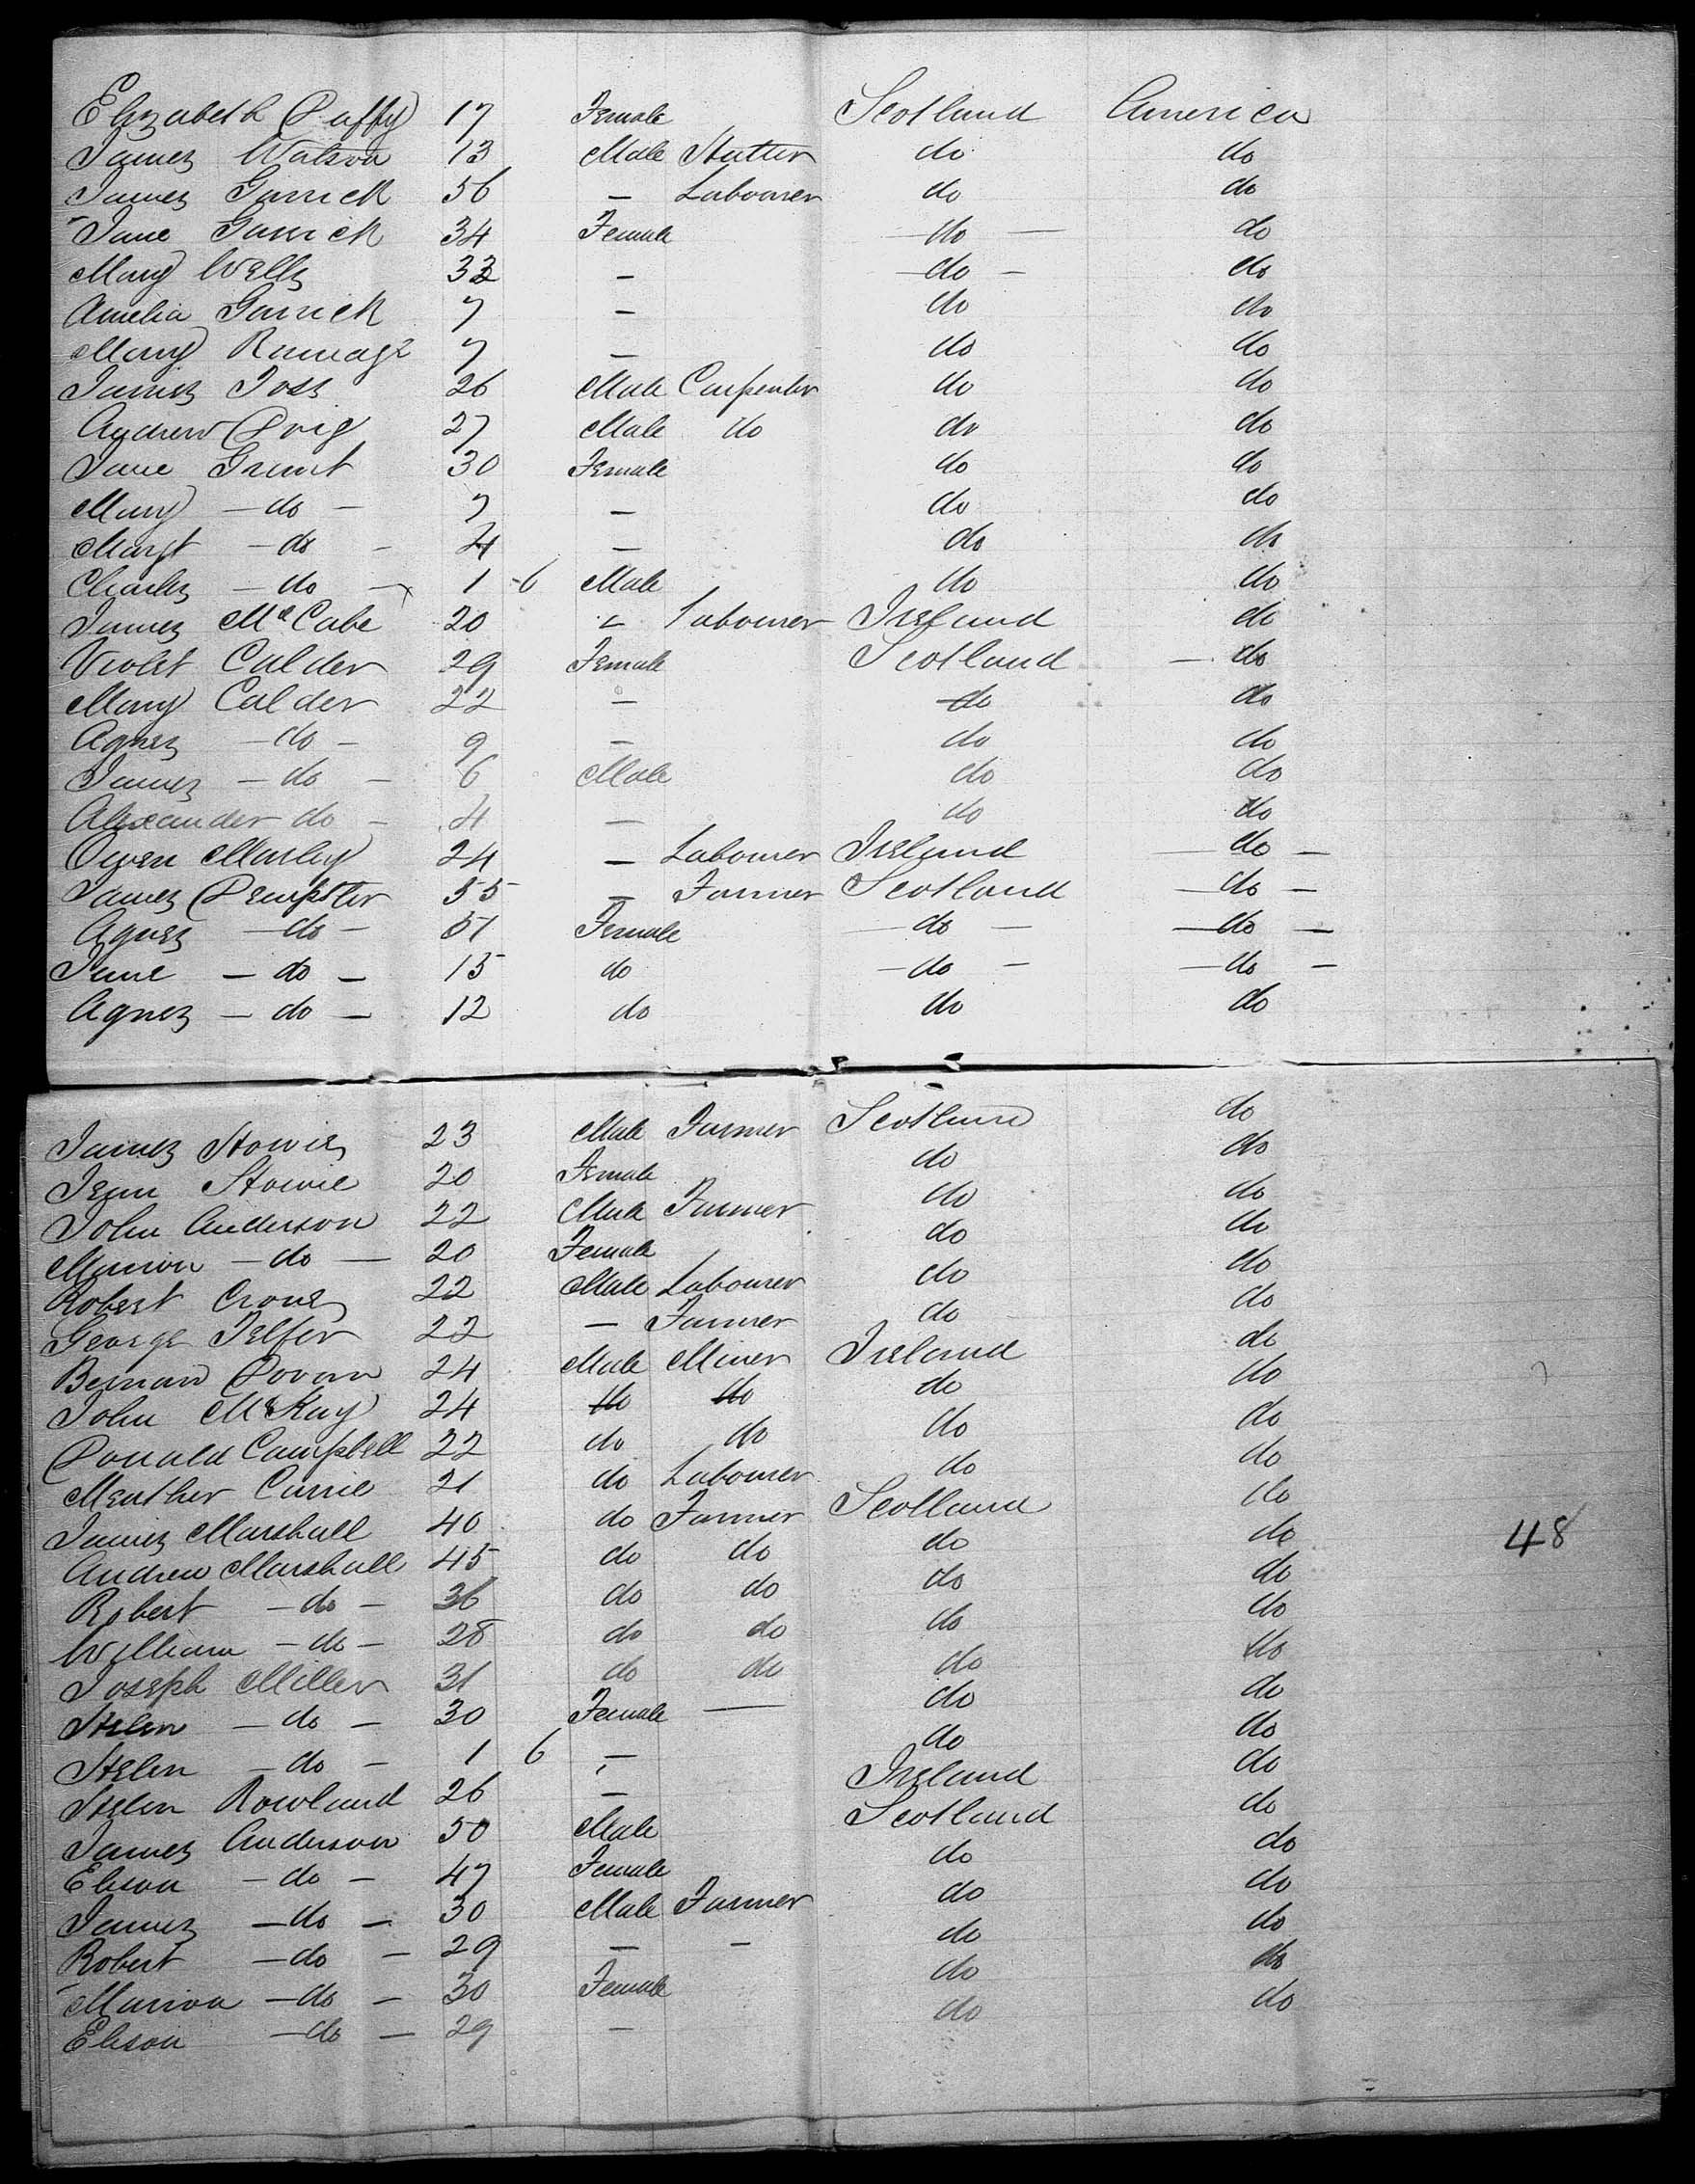 Elizabeth Duffy 17 Female Scotland America
James Watson 13 Male Hatter do do
James Garrick 56 — Labourer do do
Jane Garrick 34 Female — do — do
Mary Wells 33 — — do — do
Amelia Garrick 7 — do do
Mary Ramage 7 — do do
James Joss 26 Male Carpenter do do
Andrew Doig 27 Male do do do
Jane Grant 30 Female do do
Mary — do — 7 — do do
Margt — do — 4 — do do
Charles — do — 1 6 Male do do
James McCabe 20 " Labourer Ireland do
Violet Calder 29 Female Scotland — do
Mary Calder 22 — do do
Agnes — do — 9 — do do
James — do — 6 Male do do
Alexander do — 4 — do do
Owen Marley 24 — Labourer Ireland — do —
James Dempster 55 — Farmer Scotland — do —
Agnes — do — 51 Female — do — — do —
Jane — do — 15 do — do — — do —
Agnes — do — 12 do do do
James Howie 23 Male Farmer Scotland do
Jean Howie 20 Female do do
John Anderson 22 Male Farmer do do
Marion — do — 20 Female do do
Robert 22 Male Labourer do do
George Telfer 22 — Farmer do do
24 Male Miner Ireland do
John McKay 24 do do do do
Donald Campbell 22 do do do do
Currie 21 do Labourer do do
James Marshall 40 do Farmer Scotland do
Andrew Marshall 45 do do do do
48
Robert — do — 36 do do do do
William — do — 28 do do do do
Joseph Miller 31 do do do do
Helen — do — 30 Female — do do
Helen — do — 1 6 — do do
Helen Rowland 26 — Ireland do
James Anderson 50 Male Scotland do
Elison — do — 47 Female do do
James — do — 30 Male Farmer do do
Robert — do — 29 — — do do
Marion — do — 30 Female do do
Elison — do — 29 — do do